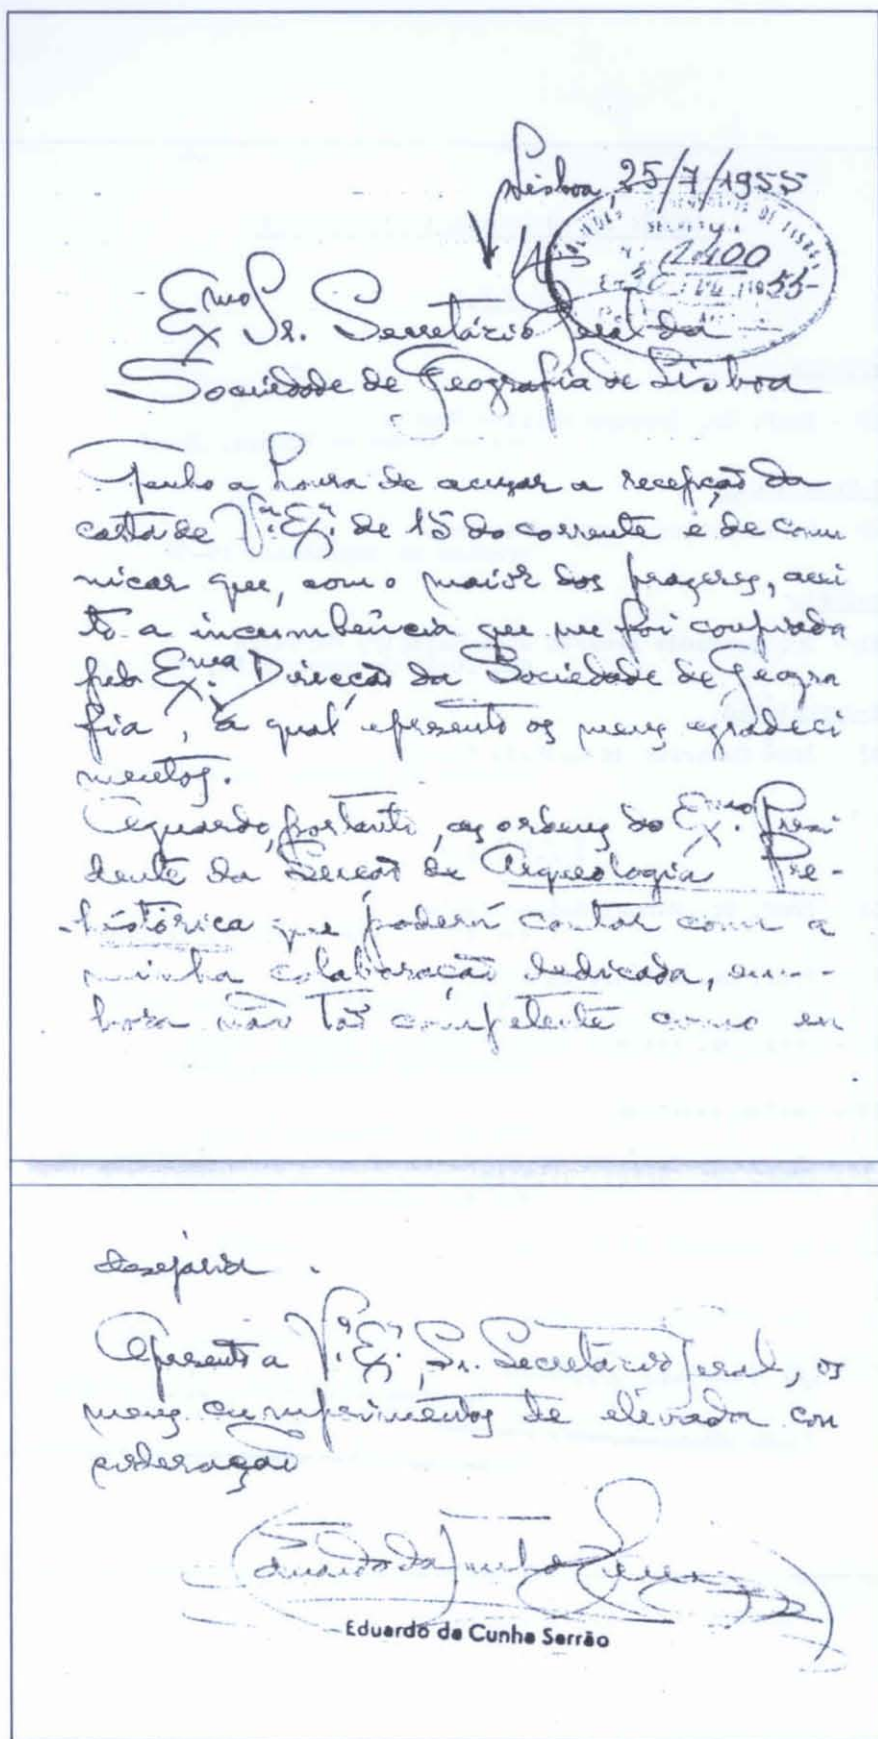 Lisboa, 25/7/1955
SOCIEDADE DE GEOGRAFIA DE LISBOA
SECRETARIA
Exmo Sr. Secretário Geral da
Sociedade de Geografia de Lisboa
Tenho a honra de acusar a recepção da
carta de V.ª Ex.ª de 15 do corrente e de comu
nicar que, com o maior dos prazeres, acei
to a incumbência que me foi confiada
pela Exma Direcção da Sociedade de Geogra
fia, à qual apresento os meus agradeci
mentos.
Aguardo, portanto, as ordens do Exmo Presi
dente da Secção de Arqueologia Pre-
-histórica que poderá contar com a
minha colaboração dedicada, em-
bora não tão competente como eu
desejaria.
Apresento a V.ª Ex.ª, Sr. Secretário Geral, os
meus cumprimentos de elevada con
sideração
Eduardo da Cunha Serrão
Eduardo da Cunha Serrão